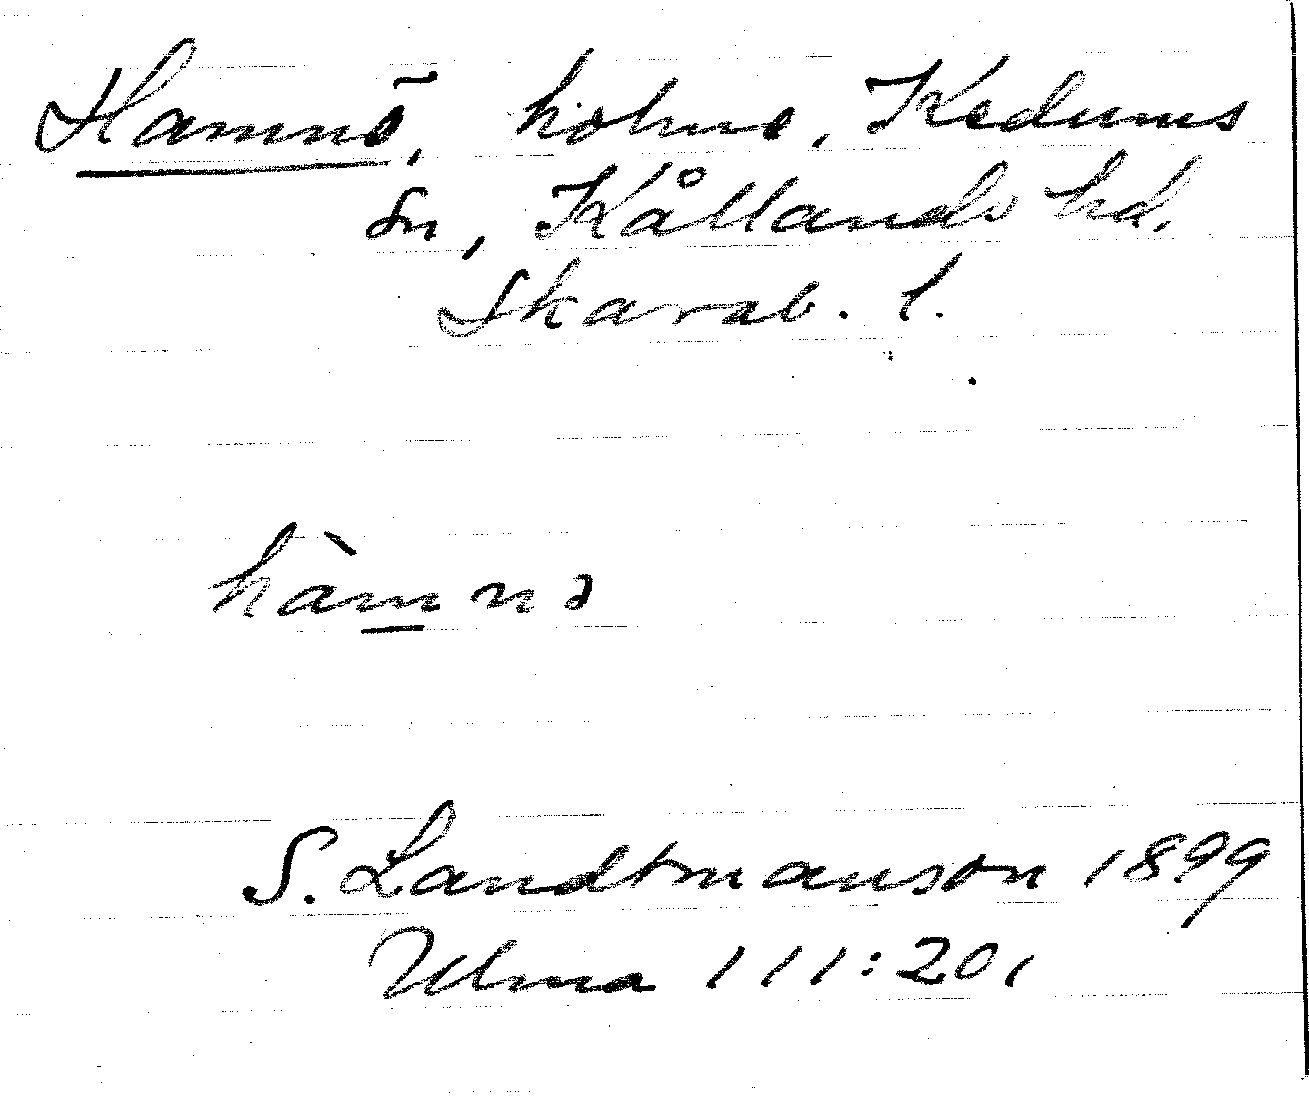 Hamnö, holme, Kedums
sn, Kållands hd,
Skarab. l.
hàmnə
S. Landtmanson 1899
Ulma 111:201